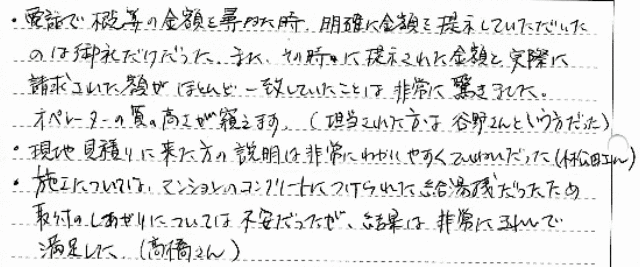 ・電話で概算の金額を尋ねた時、明確に金額を提示していただいた
のは御社だけだった。また、その時に提示された金額と実際に
請求された額がほとんど一致していたことは非常に驚きました。
オペレーターの質の高さが窺えます。(担当された方は谷野さんという方だった)
・現地見積りに来た方の説明は非常にわかりやすくていねいだった(松田さん)
・施工については、マンションのコンクリートにつけられた給湯機だったため
取付のしあがりについては不安だったが、結果は非常にきれいで
満足した。(高橋さん)